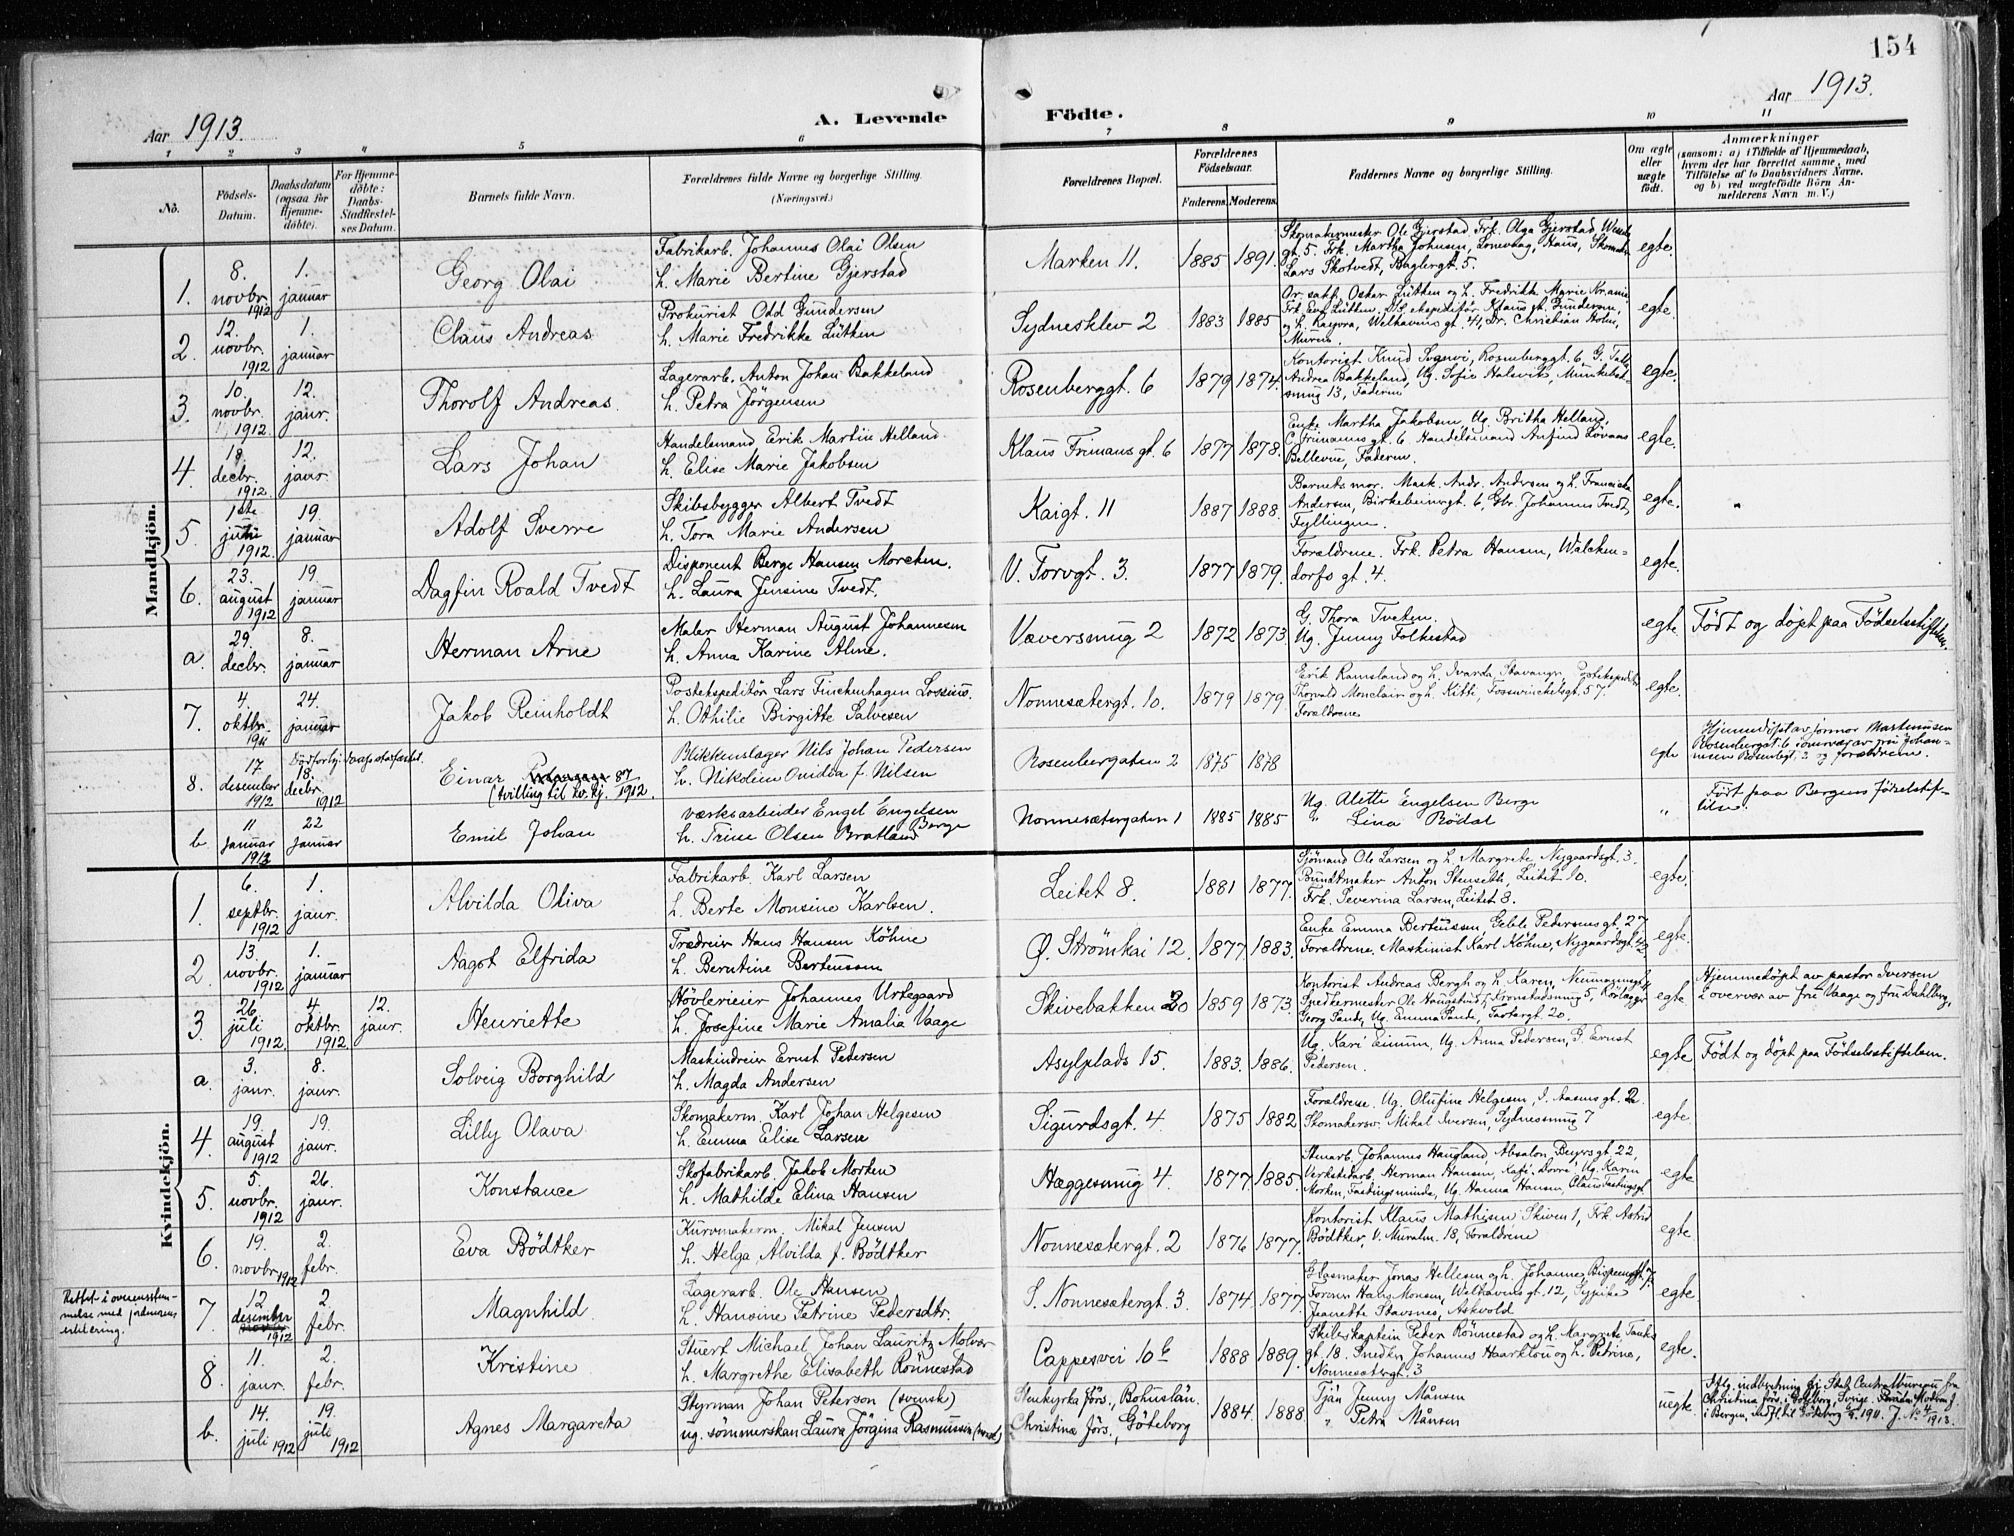 154
Aar 1913.
A. Levende Födte.
Aar 1913.
1 2 3 4 5 6 7 8 9 10 11
No.
Födsels-
Datum.
Daabsdatum
(ogsaa for
Hjemme-
döbte).
For Hjemme-
döbte:
Daabs-
Stadfæstel-
ses Datum.
Barnets fulde Navn.
Forældrenes fulde Navne og borgerlige Stilling.
(Næringsvei.)
Forældrenes Bopæl.
Forældrenes
Födselsaar.
Faderens. Moderens.
Faddernes Navne og borgerlige Stilling.
Om ægte
eller
uægte
födt.
Anmærkninger
(saasom: a) i Tilfælde af Hjemmedaab,
hvem der har forrettet samme, med
Tilföielse af to Daabsvidners Navne,
og b) ved uægtefödte Börn An-
melderens Navn m. V.)
Mandkjön.
1. 8. novbr. 1912 1. januar
Georg Olai
Fabrikarb. Johannes Olai Olsen
h. Marie Bertine Gjerstad
Marken 11. 1885 1891.
Skomakermester Ole Gjerstad Frk. Olga Gjerstad
gt. 5. Frk. Martha Johnsen, Lonevaag, Haus,
Lars Skotvedt, Baglergt. 5.
egte.
2. 12. novbr. 1912 1. januar
Claus Andreas
Prokurist Odd Gundersen
h. Marie Fredrikke Lütken
Sydnesklev 2 1883 1885
Oskar Lütken og h. Fredrikke Marie
ekspeditør Klaus gt. Gundersen,
og h. Ragora, Welhavens gt. 41, Dr. Christian Holm,
egte.
3. 10. novbr. 1912. 12. jaur.
Thorolf Andreas.
Lagerarb. Anton Johan Bakkeland
h. Petra Jörgensen
Rosenberggt. 6 1879 1874.
Kontorist Knud Rosenberggt. 6
Andrea Bakkeland, Ug. Sofie Halsvik,
13, Faderen
egte.
4. 18. decbr. 1912. 12. jaur.
Lars Johan
Handelsmand Erik Martin Helland.
h. Elise Marie Jakobsen
Klaus Frimans gt. 6 1877 1878.
Enke Martha Jakobsen, Ug. Britha Helland,
C. Frimanns gt. 6 Handelsmand Anfind Lovaas
Bellevue, Faderen.
egte.
5. 1ste juli 1912. 19. januar
Adolf Sverre
Skibsbygger Albert Tvedt
h. Tora Marie Andersen
Kaigt. 11 1887 1888.
Barnets mor. Mask. Andr. Andersen og h. Franciska
Andersen, Birkebeinergt. 6, Gbr. Johannes Tvedt,
Fyllingen.
egte.
6. 23. august 1912 19. januar
Dagfin Roald Tvedt
Disponent Berge Hansen Morchen.
h. Laura Jensine Tvedt.
V. Torvgt. 3. 1877 1879.
Forældrene. Frk. Petra Hansen, Walcken-
dorfs gt. 4.
egte.
a. 29. decbr. 8. januar
Herman Arne
Maler Herman August Johannesen
h. Anna Karine Aline.
Væversmug 2 1872 1873.
G. Thora Tveten.
Ug. Jenny Folkestad
egte. Födt og döpt paa Födselsstiftelsen.
7. 4. oktbr. 1911 24. januar
Jakob Reinholdt
Postekspeditör Lars Finckenhagen Lossius.
h. Othilie Birgitte Salvesen
Nonnesætergt. 10. 1879 1879
Erik Ramsland og h. Ivarda, Stavangr,
Thorvald Monclair og h. Kitti, Fosswinckelsgt. 57.
Forældrene
egte.
8. 17 desember 1912 18. decbr. 1912
Einar
(tvilling til kv. kj. 87/1912.
Blikkenslager Nils Johan Pedersen
h. Nikoline Ovidia f. Nilsen
Rosenbergaten 2 1875 1878
egte Hjemmedöpt av jormor Martinusen
Rosenbergt. 6 i overvær av fru Johan-
nesen Rosenbgt. 2 og forældrene.
b. 11 Januar 1913 22 Januar
Emil Johan
Værksarbeider Engel Engelsen Berge
h. Trine Olsen Bratland
Nonnesætergaten 1 1885 1885
Ug. Alette Engelsen Berge
" Lina Rödal
" Födt paa Bergens födselsstif-
telse.
Kvindekjön.
1. 6. septbr. 1912 1. jaur.
Alvilda Oliva
Fabrikarb. Karl Larsen
h. Berte Monsine Karlsen.
Leitet 8. 1881 1877.
Sjömand Ole Larsen og h. Margrete Nygaardsgt. 3.
Bundtmaker Anton Stenseth, Leitet 10.
Frk. Severina Larsen, Leitet 8.
egte.
2. 13. novbr. 1912 1. januar
Aagot Elfrida
Trædreier Hans Hansen Köhne
h. Berntine Berteussen
Ø. Strömkai 12. 1877 1883.
Enke Emma Berteussen, Geble Pedersens gt. 27.
Forældrene. Maskinist Karl Köhne, Nygaardsgt. 42
egte.
3. 26. juli 1912. 4. oktbr. 1912. 12. jaur.
Henriette
Hövlerieier Johannes Urtegaard
h. Josefine Marie Amalia Vaage
Skivebakken 20 1859 1873.
Kontorist Andreas Bergh og h. Karen,
Snedkermester Ole Haugstad, Kronstadsmug 5,
Georg Sande, Ug. Emma Sande, Tartargt. 20.
egte Hjemmedöpt av pastor Iversen
i overvær av fru Vaage og fru Dahlberg.
a. 3. jaur. 8. jaur.
Solveig Borghild
Maskindreier Ernst Pedersen
h. Magda Andersen
Asylplads 15. 1883. 1886.
Ug. Kari Ug. Anna Pedersen, Ernst
Pedersen.
egte Födt og döpt paa Födselsstiftelsen.
4. 19. august 1912 19. jaur.
Lilly Olava
Skomakerm. Karl Johan Helgesen
h. Emma Elise Larsen
Sigurdsgt. 4. 1875 1882
Forældrene. Ug. Olufine Helgesen, I. Aasens gt. 2.
Skomakersv. Mikal Iversen, Sydnessmug 7
egte
5. 5. novbr. 1912 26. jaur.
Konstance
Skofabrikarb. Jakob Morken
h. Mathilde Elina Hansen
Hæggesmug 4. 1877 1885
Stenarb. Johannes Haugland, Absalon Beyers gt. 22,
Verkstedarb. Herman Hansen, Kafé Dovre, Ug. Karen
Morken, Ug. Hanna Hansen,
egte
6. 19. novbr. 1912 2. febr.
Eva Bödtker
Kurvmakersv. Mikal Jensen
h. Helga Alvilda f. Bödtker
Nonnesætergt. 2 1876 1877.
Kontorist Klaus Mathisen Skiven 1, Frk. Astrid
Bödtker, V. Muralm. 18, Forældrene
egte
Rettet i overensstem-
melse med jordmorens
erklæring.
7. 12 desember 1912 2. febr.
Magnhild.
Lagerarb. Ole Hansen
h. Hansine Petrine Pedersdtr.
S. Nonnesætergt. 3. 1874 1877
Glasmaker Jonas Hellesen og h. Johanne,
Former Hans Monsen, Welhavens gt. 12,
Jeanette Stavnes, Askvold
egte
8. 11. jaur. 2. febr.
Kristine
Stuert Michael Johan Lauritz Molvær
h. Margrethe Elisabeth Rönnestad
Cappesvei 10b 1888 1889.
Skibskaptein Peder Rönnestad og h. Margrete, Tanks
gt. 18. Snedker Johannes Haarklou og h. Petrine,
Nonnesætergt. 3
egte.
b. 14. juli 1912 19. juli 1912
Agnes Margareta
Styrman Johan Peterson (svensk)
ug. sömmerskan Laura Jörgina Rasmussen (norsk)
Stenkyrka förs., Bohuslän.
Christinæ förs., Göteborg
1884 1888
Tjän Jenny Månsen
" Petra Månsen
uegte Iflg. indberetning fra Stat. Centralbureau fra
Christinæ förs. i Göteborg, Sverige.
i Bergen, indfl. til Göteborg 1911. J. No. 4/1913.